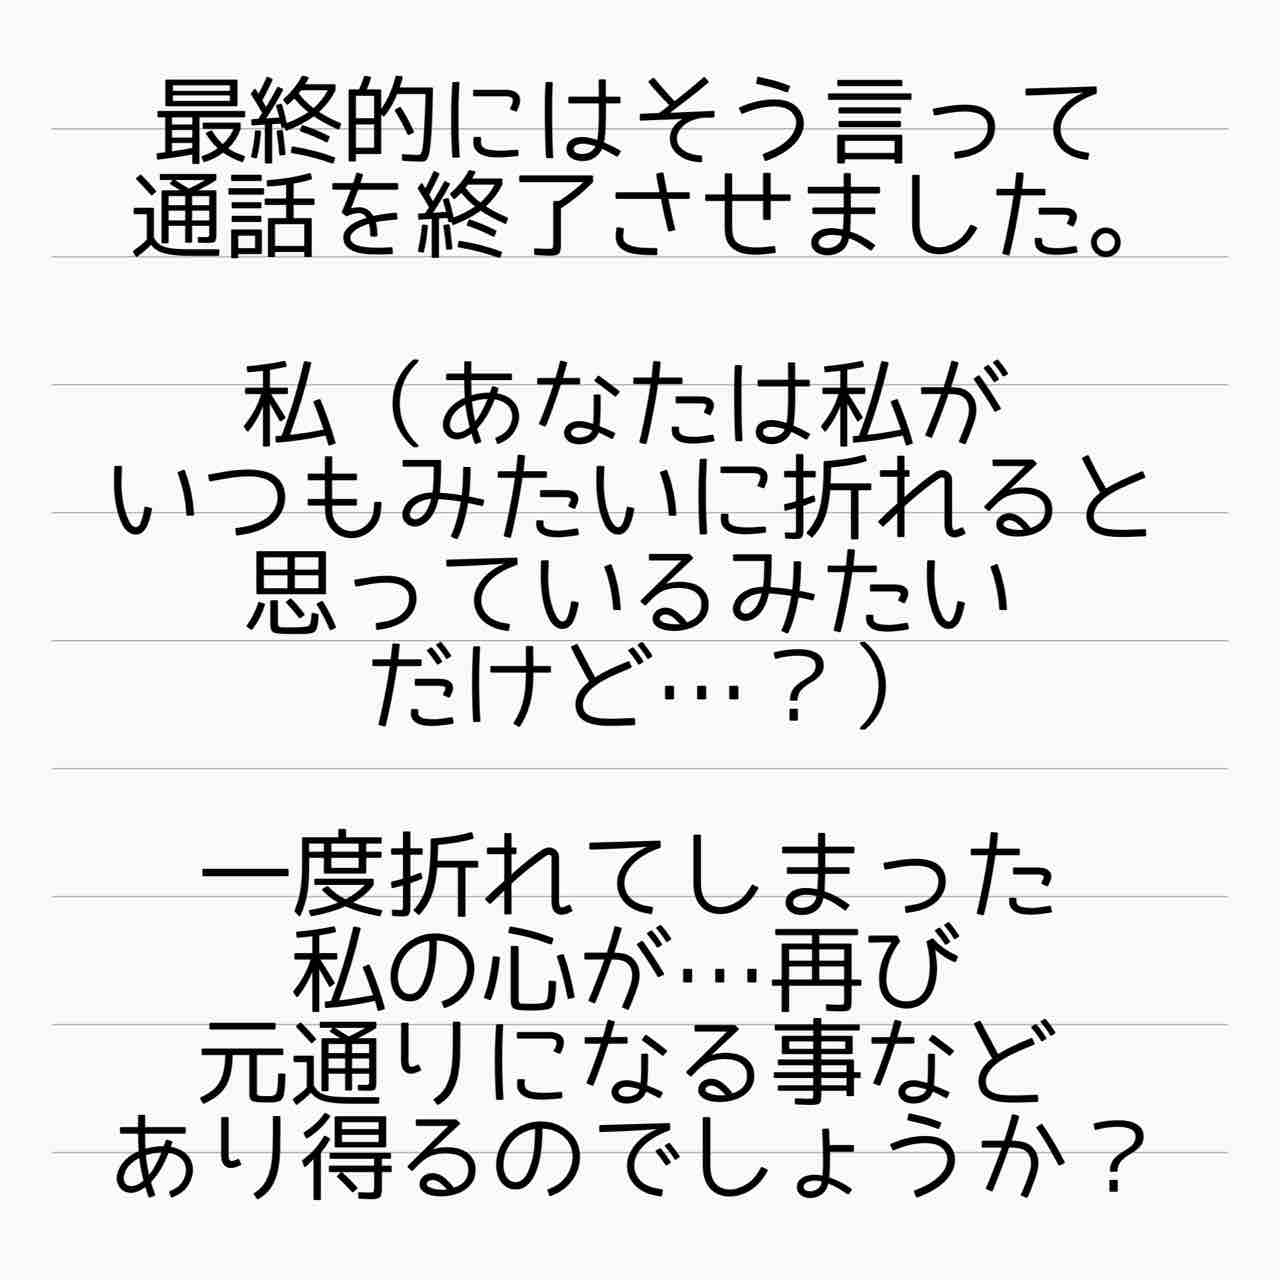 最終的にはそう言って
通話を終了させました。
私（あなたは私が
いつもみたいに折れると
思っているみたい
だけど…？）
一度折れてしまった
私の心が…再び
元通りになる事など
あり得るのでしょうか？